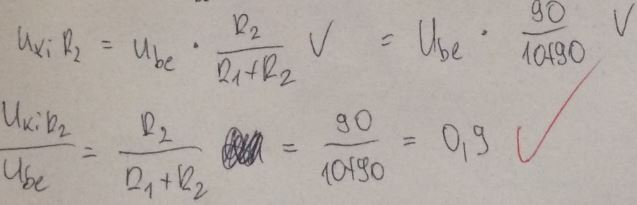 Uki R₂ = Ube · R₂/(R₁+R₂) V = Ube · 90/(10+90) V
Uki R₂/Ube = R₂/(R₁+R₂) = 90/(10+90) = 0,9